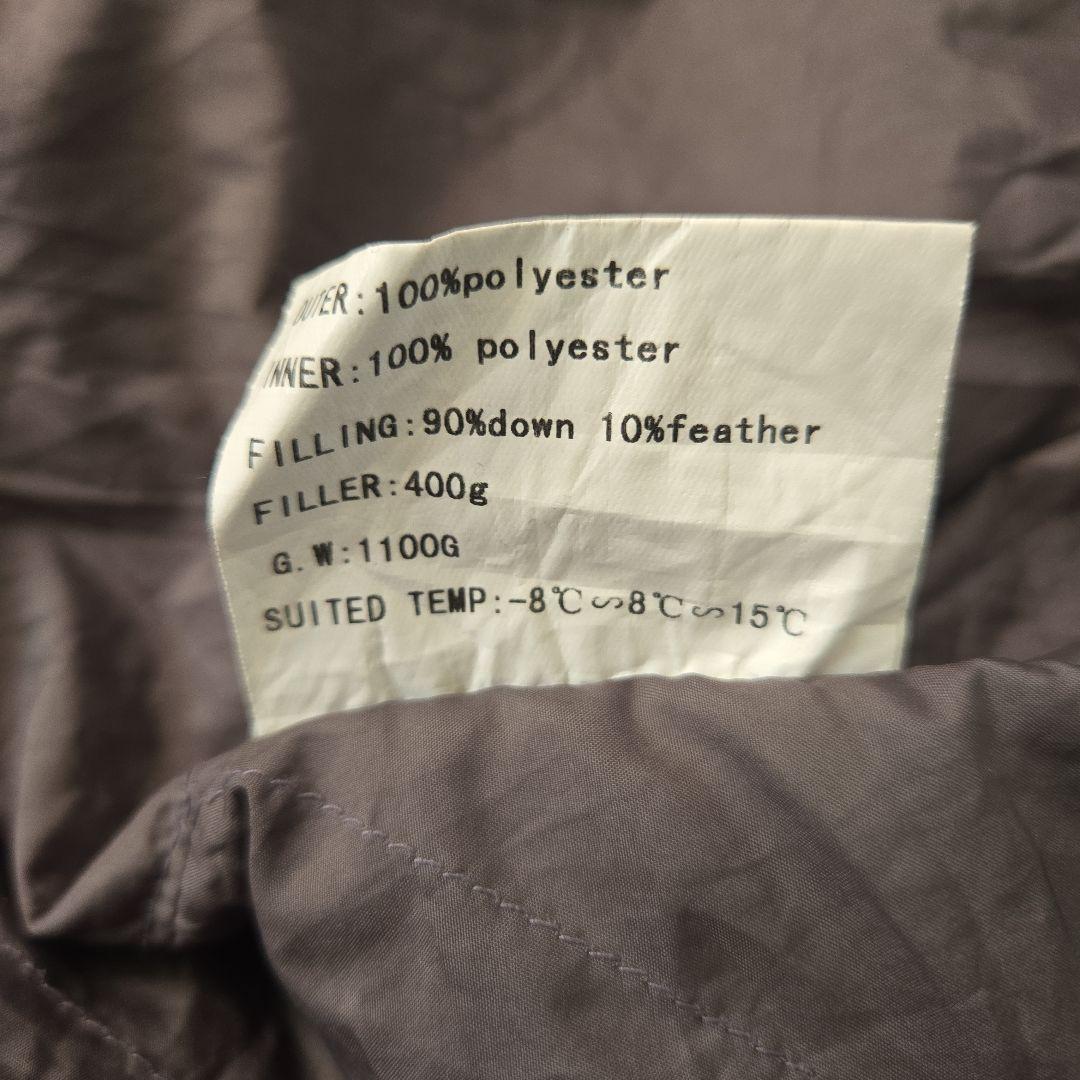 OUTER:100%polyester
INNER:100% polyester
FILLING:90%down 10%feather
FILLER:400g
G.W:1100G
SUITED TEMP:-8℃∽8℃∽15℃